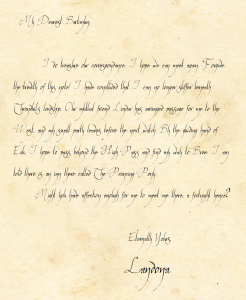 My Dearest Barlynhn,
I do treasure our correspondence. I hope we can meet soon. Forgive
the brevity of this note. I have concluded that I can no longer suffer beneath
lordship. Our mutual friend has arranged passage for me to the
West, and my small party leaves before the next watch. By the guiding hand of
I hope to pass beyond the High Pass and find my wish to Bree. I am
told there is an inn there called The Prancing Pony.
Might you have affection enough for me to meet me there, a fortnight hence?
Eternally Yours,